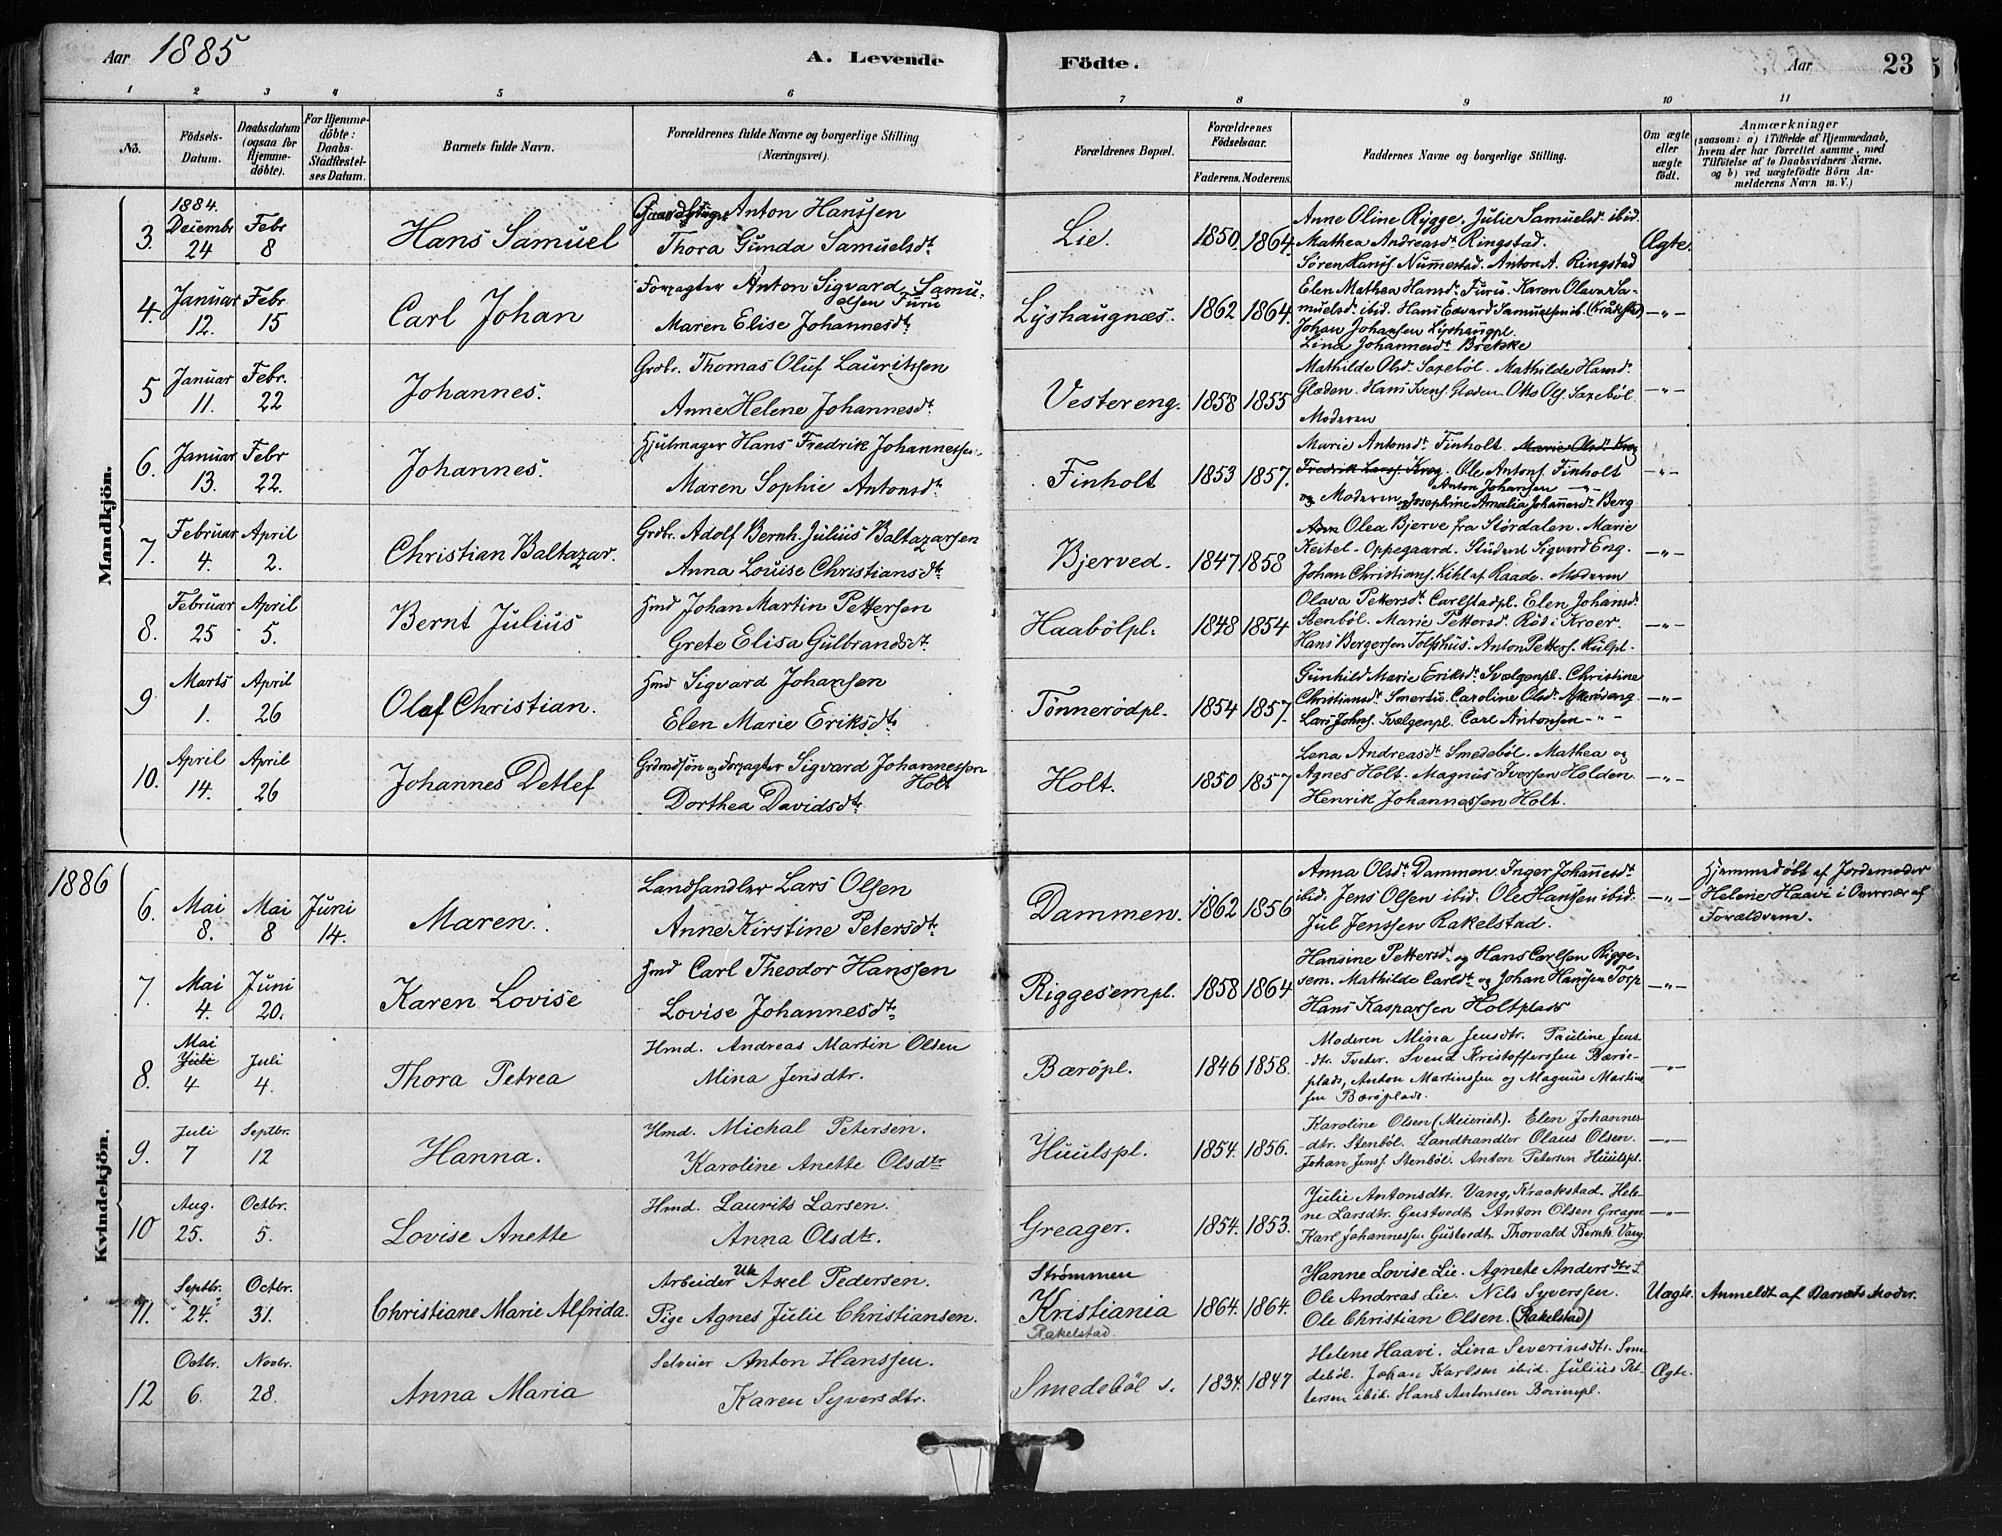 Aar 1885 A. Levende Födte. Aar 23
1 2 3 4 5 6 7 8 9 10 11
No.
Födsels-Datum.
Daabsdatum (ogsaa for Hjemme-döbte).
For Hjemme-döbte: Daabs-Stadfæstel-ses Datum.
Barnets fulde Navn.
Forældrenes fulde Navne og borgerlige Stilling (Næringsvei).
Forældrenes Bopæl.
Forældrenes Födselsaar.
Faderens. Moderens.
Faddernes Navne og borgerlige Stilling.
Om ægte eller uægte födt.
Anmærkninger
(saasom: a) i Tilfælde af Hjemmedaab,
hvem der har forrettet samme, med
Tilföielse af to Daabsvidners Navne.
og b) ved uægtefödte Börn An-
melderens Navn m. V.)
Mandkjön.
3. 1884. Decembr 24 Febr 8 Hans Samuel
Anton Hanssen
Thora Gunda Samuelsdt.
Lie. 1850 1864.
Anne Oline Rygge. Julie Samuelsdt ibid.
Mathea Andreasdt. Ringstad.
Søren Hanss. Nummestad. Anton A. Ringstad
Ægte.
4. Januar 12. Febr 15 Carl Johan
Forpagter Anton Sigvard Samu-
elsen Furu
Maren Elise Johannesdt.
Lyshaugnæs. 1862 1864.
Elen Mathea Hansdt. Furu. Karen Olava Sa-
muelsdt. ibid. Hans Edvard Samuelsen ib. (Kråkstad)
Johan Johansen Lyshaugpl.
Lina Johannesdt. Brekke
—"—
5 Januar 11. Febr. 22 Johannes.
Grdbr. Thomas Oluf Lauritssen
Anne Helene Johannesdt.
Vestereng. 1858 1855
Mathilde Olsdt. Saxebøl. Mathilde Hansdt.
Glæden. Hans Svens. Glæden. Otto Ols. Saxebøl.
Moderen
—"—
6. Januar 13. Febr 22. Johannes.
Hjulmager Hans Fredrik Johannessen.
Maren Sophie Antonsdt.
Finholt 1853 1857.
Marie Antonsdt. Finholt. Marie Olsdt. Krog
Fredrik Larss. Krog. Ole Antons. Finholt
Anton Johansen —"—
og Moderen og Josephine Amalia Johannesdt. Berg
—"—
7. Februar 4. April 2. Christian Baltazar.
Grdbr. Adolf Bernh. Julius Baltazarsen
Anna Louise Christiansdt.
Bjerved. 1847 1858
Olea Bjerve fra Stördalen. Marie
Keitel-Oppegaard. Student Sigvard Eng.
Johan Christians. Kihl af Raade. Moderen
—"—
8. Februar 25 April 5. Bernt Julius
Hmd Johan Martin Pettersen
Grete Elisa Gulbrandsdt.
Haabölpl. 1848 1854
Olava Pettersdt. Carlstadpl. Elen Johansdt.
Stenbøl. Marie Pettersdt. Röd i Kroer.
Hans Bergersen Tolfshus. Anton Petters. Kulpl.
—"—
9 Marts 1. April 26 Olaf Christian.
Hmd Sigvard Johansen
Elen Marie Eriksdt.
Tönnerödpl. 1854 1857.
Gunhild Marie Eriksdt. Svælgenpl. Christine
Christiansdt. Smertu. Caroline Olsdt. Askeröeng
Lars Johns. Svælgenpl. Carl Antonsen —"—
—"—
10. April 14. April 26 Johannes Detlef
Grdmdsøn og Forpagter Sigvard Johannessen
Holt
Dorthea Davidsdt.
Holt. 1850 1857
Lena Andreasdt. Smedebøl. Mathea og
Agnes Holt. Magnus Iversen Holden.
Henrik Johannessen Holt.
—"—
1886
Kvindekjön.
6. Mai 8. Mai 8 Juni 14. Maren.
Landhandler Lars Olsen
Anne Kirstine Petersdt.
Dammen. 1862 1856
Anna Olsdt. Dammen. Inger Johannesdt.
ibid. Jens Olsen ibid. Ole Hanssen ibid.
Jul Jenssen Rakelstad.
—"—
Hjemmedøbt af Jordemoder
Helene Haavi i Overvær af
Forældrene.
7. Mai 4. Juni 20. Karen Lovise
Hmd Carl Theodor Hanssen
Lovise Johannesdt.
Riggesempl. 1858 1864
Hansine Pettersdt. og Hans Carlsen Rigge-
sem. Mathilde Carlsdt. og Johan Hanssen Torp
Hans Kaspersen Holtplads
—"—
8. Mai Juli 4 Juli 4. Thora Petrea
Hmd. Andreas Martin Olsen
Mina Jensdtr.
Bæröpl. 1846 1858.
Moderen Mina Jensdtr. Pauline Jens-
dtr. Tveter. Svend Kristofferssen Bærö-
plads, Anton Martinssen og Magnus Martins-
sen Bæröplads.
—"—
9. Juli 7 Septbr. 12 Hanna.
Hmd. Michal Petersen.
Karoline Anette Olsdtr
Huulspl. 1854. 1856.
Karoline Olsen (Meieriet). Elen Johannes-
dtr. Stenböl. Landhandler Olaus Olsen.
Johan Jenss. Stenböl. Anton Petersen Huulspl.
—"—
10 Aug. 25. Octbr. 5. Lovise Anette
Hmd. Laurits Larsen.
Anna Olsdtr.
Greager. 1854. 1853.
Julie Antonsdtr. Vang, Kraakstad. Hele-
ne Larsdtr. Gustvedt. Anton Olsen Greager
Karl Johannessen Gustvedt. Thorvald Bernts. Vang
—"—
11. Septbr. 24. Octbr. 31. Christiane Marie Alfrida.
Arbeider Uk Axel Pedersen.
Pige Agnes Julie Christiansen.
Strömmen
Kristiania
Rakelstad
1864. 1864.
Hanne Lovise Lie. Agnete Andersdtr L
Ole Andreas Lie. Nils Syverssen.
Ole Christian Olsen. (Rakelstad)
Uægte. Anmeldt af Barnets Moder.
12 Octbr. 6. Novbr. 28. Anna Maria
Selveier Anton Hanssen.
Karen Syversdtr.
Smedeböl s. 1834. 1847
Helene Haavi. Lina Severinsdtr. Sme-
deböl. Johan Karlsen ibid. Julius Pet-
tersen ibid. Hans Antonsen
Ægte.